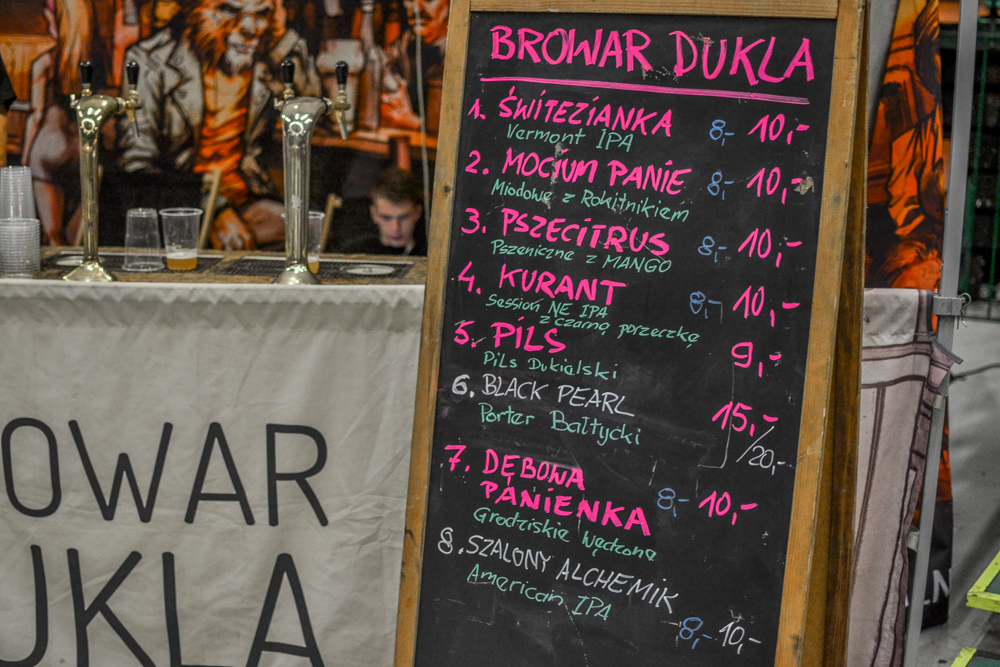 BROWAR DUKLA
1. ŚWITEZIANKA 8,- 10,-
Vermont IPA
2. MOCIUM PANIE 8,- 10,-
Miodowe z Rokitnikiem
3. PSZECITRUS 8,- 10,-
Pszeniczne z MANGO
4. KURANT 8,- 10,-
Session NE IPA
z czarną porzeczkę
5. PILS 9,-
Pils Dukialski
6. BLACK PEARL 15,-
Porter Bałtycki /20,-
7. DĘBOWA
PANIENKA 8,- 10,-
Grodziskie Wędzone
8. SZALONY ALCHEMIK
American IPA
8,- 10,-
OWAR
UKLA